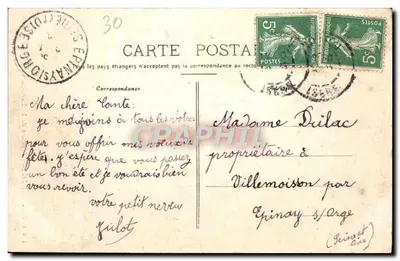 30
CARTE POSTALE
les pays étrangers n'acceptent pas la correspondance au
Correspondance
5c
POSTES
5c
POSTES
ISÈRE
EPINAY S/ORGE
Ma chère Tante:
je me joins à tous les vôtres
pour vous offrir mes voeux de
fête. j'espère que vous passez
un bon été et je voudrais bien
vous revoir.
votre petit neveu
Julot
Madame Dulac
propriétaire à
Villemoisson par
Epinay s/Orge
(Seine et
Oise)